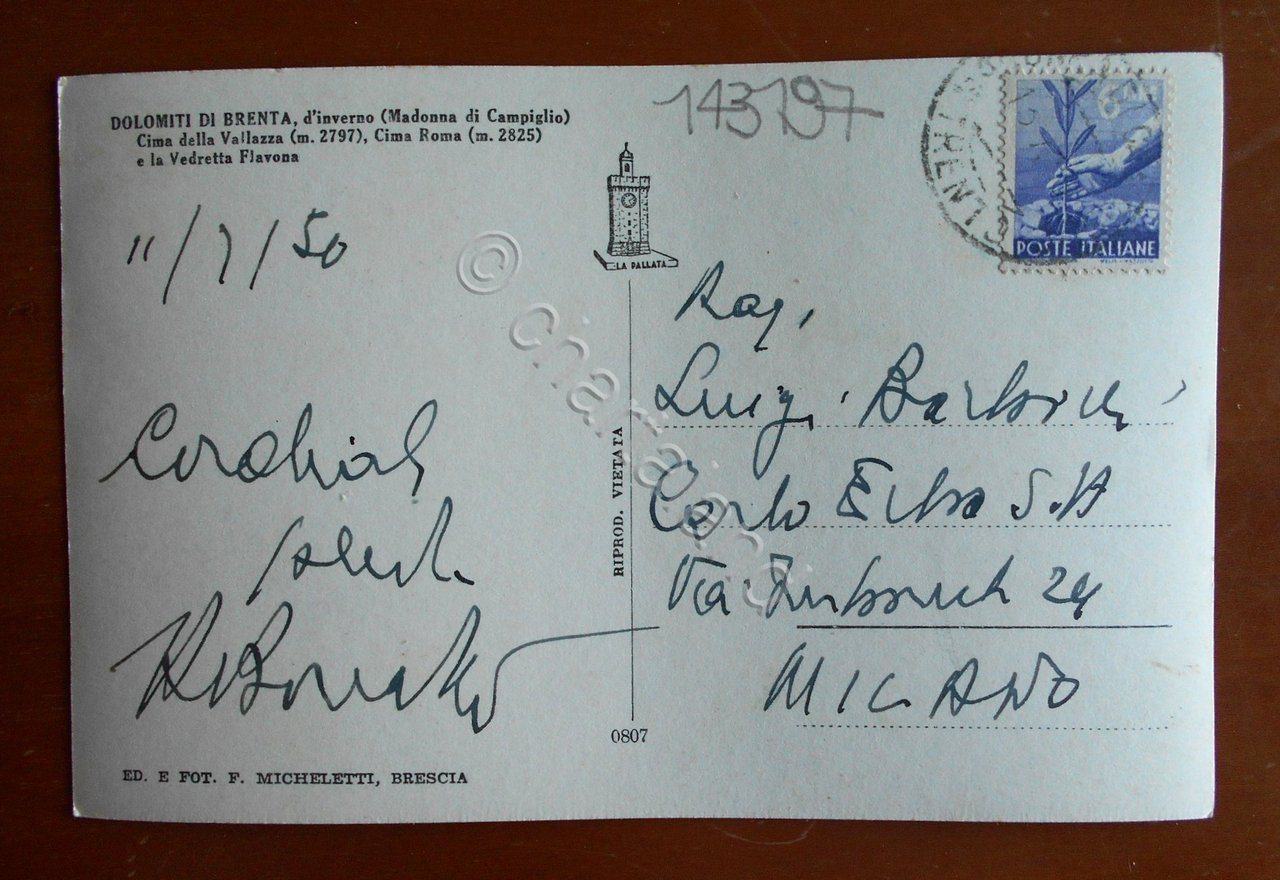 DOLOMITI DI BRENTA, d'inverno (Madonna di Campiglio)
Cima della Vallazza (m. 2797), Cima Roma (m. 2825)
e la Vedretta Flavona
11/7/50
Cordiali
saluti
143197
LA PALLATA
6
POSTE ITALIANE
TRENTO
Rag.
Luigi
Carlo Erba S.A
Via 24
MILANO
RIPROD. VIETATA
0807
ED. E FOT. F. MICHELETTI, BRESCIA
© chara